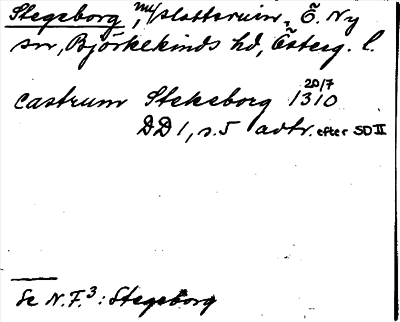 Stegeborg, nu slottsruin, Ö. Ny
sn, Björkekinds hd, Österg. l.
castrum Stekeborg 20/7 1310
DD 1, s. 5 avtr. efter SD II
Se N.F.³: Stegeborg